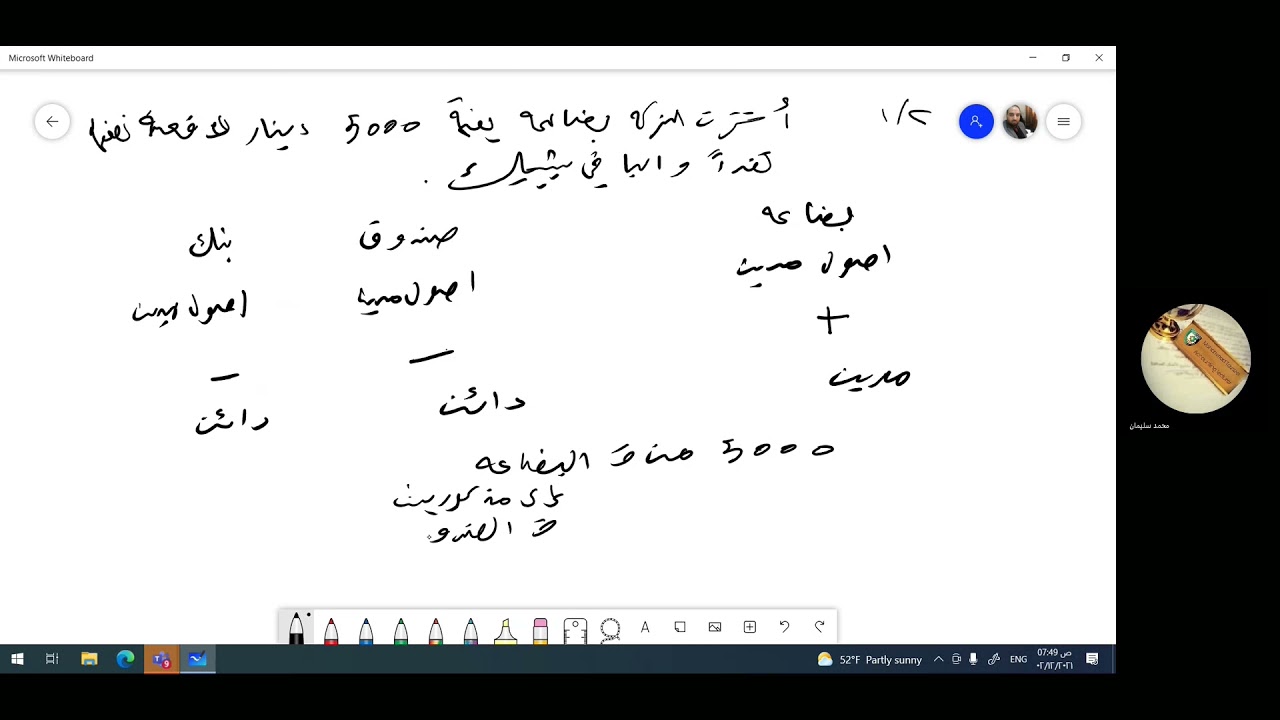 Microsoft Whiteboard
١/٢ أشترت الشركة بضاعة بقيمة 5000 دينار دفعت نصفها
نقداً والباقي بشيك .
بضاعة صندوق بنك
اصول مدين اصول مدين اصول مدين
+ – –
مدين دائن دائن
5000 من ح البضاعة
الى مذكورين
ح الصندو
محمد سليمان
A
52°F Partly sunny
ENG
07:49 ص
٠٢/١٢/٢٠٢١